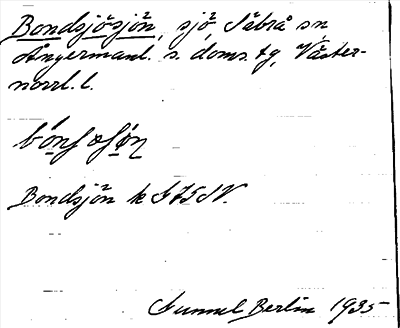 Bondsjösjön, sjö, Säbrå sn,
Ångermanl. s. doms. tg, Väster-
norrl. l.
Bondsjön k G75SV.
Gunnel Berlin 1935